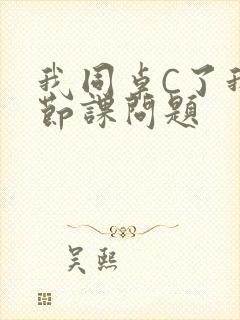 我同桌C了我
节课问题
吴熙